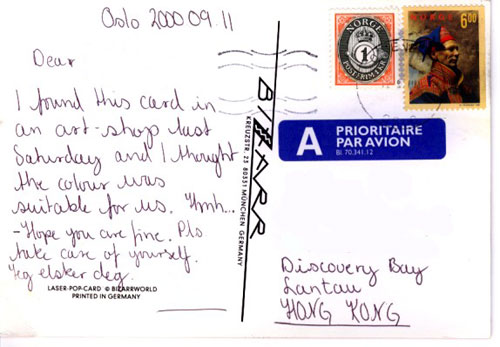 Oslo 2000 09.11
Dear
I found this card in
an art-shop last
Saturday and I thought
the colour was
suitable for us. Hmh..
-Hope you are fine. Pls
take care of yourself.
Jeg elsker deg.
LASER-POP-CARD © BIZARRWORLD
PRINTED IN GERMANY
BIZARR
KREUZSTR. 25 80331 MÜNCHEN GERMANY
NORGE
1
POSTFRIMÆRKE
NORGE 6.00
A PRIORITAIRE
PAR AVION
Bl 70.341.12
Discovery Bay
Lantau
HONG KONG